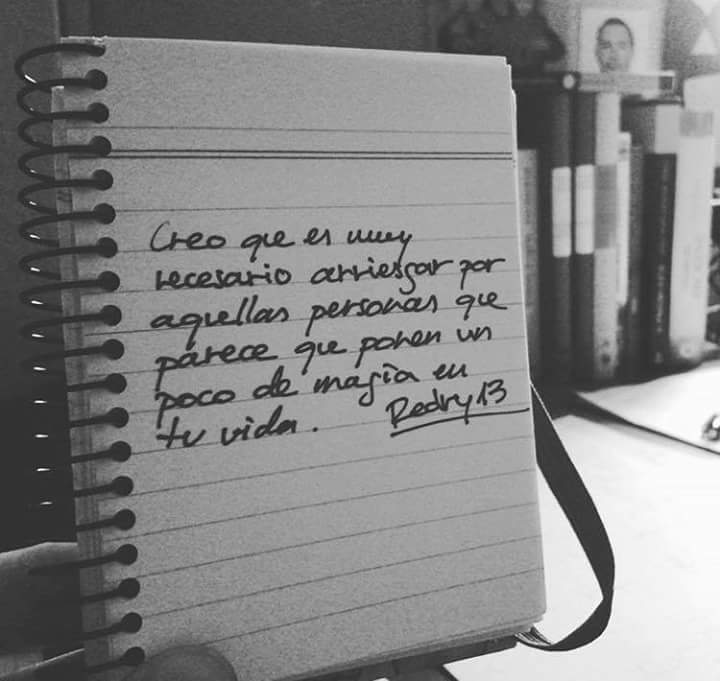 Creo que es muy
necesario arriesgar por
aquellas personas que
parece que ponen un
poco de magia en
tu vida.
Redry13